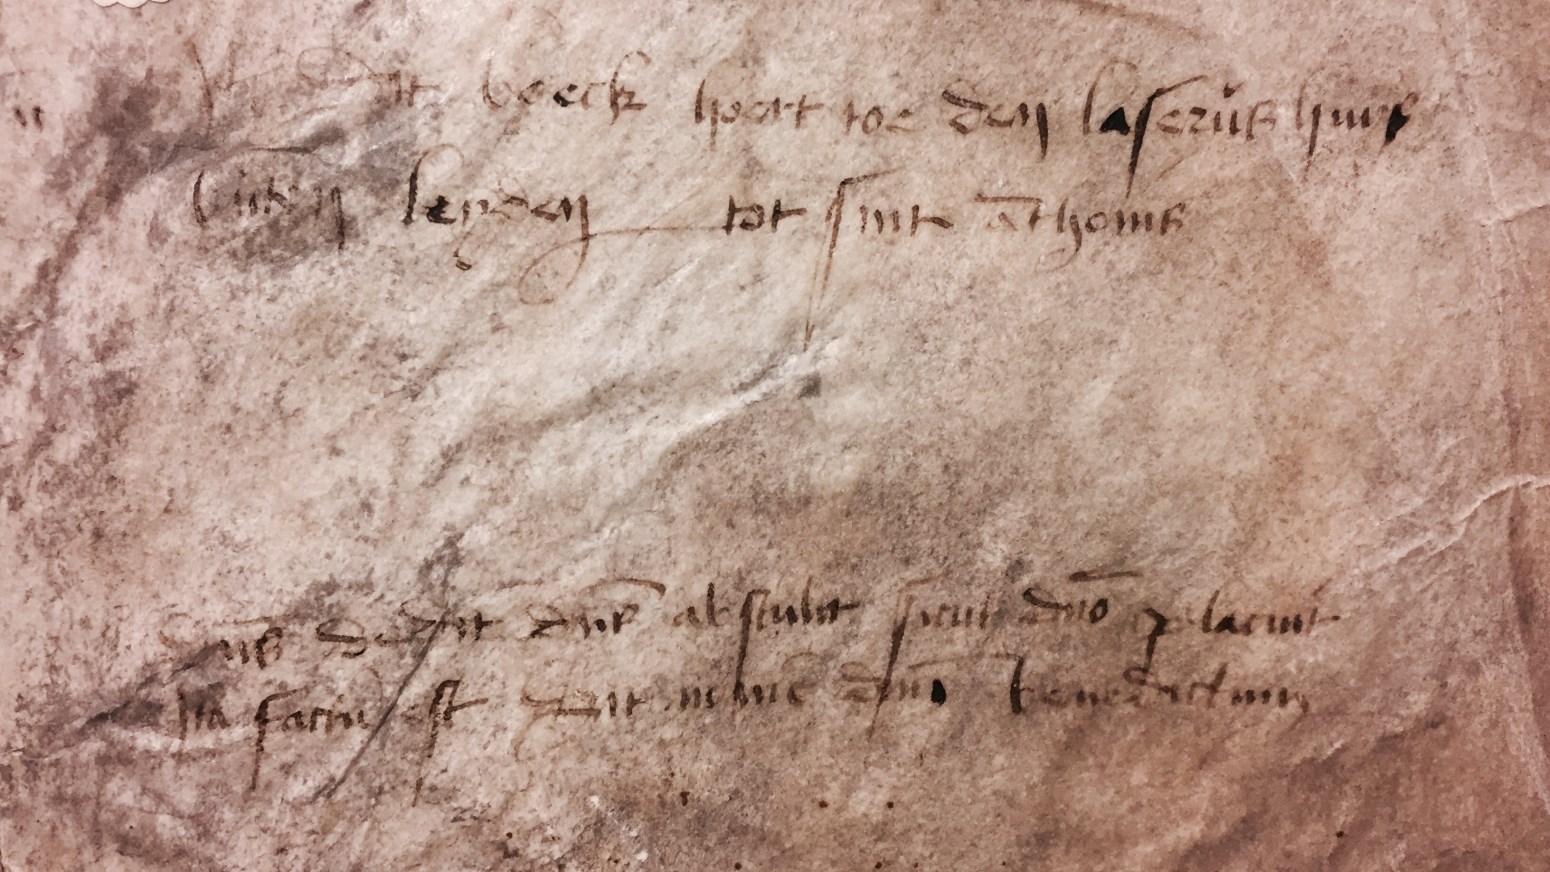 Dit boeck hoert toe den laserūs huys
buten leyden tot sint āthonis
dn̄s dedit dn̄s abstulit sicut dn̄o placuit
Ita factū est sit nomē dn̄i benedictum